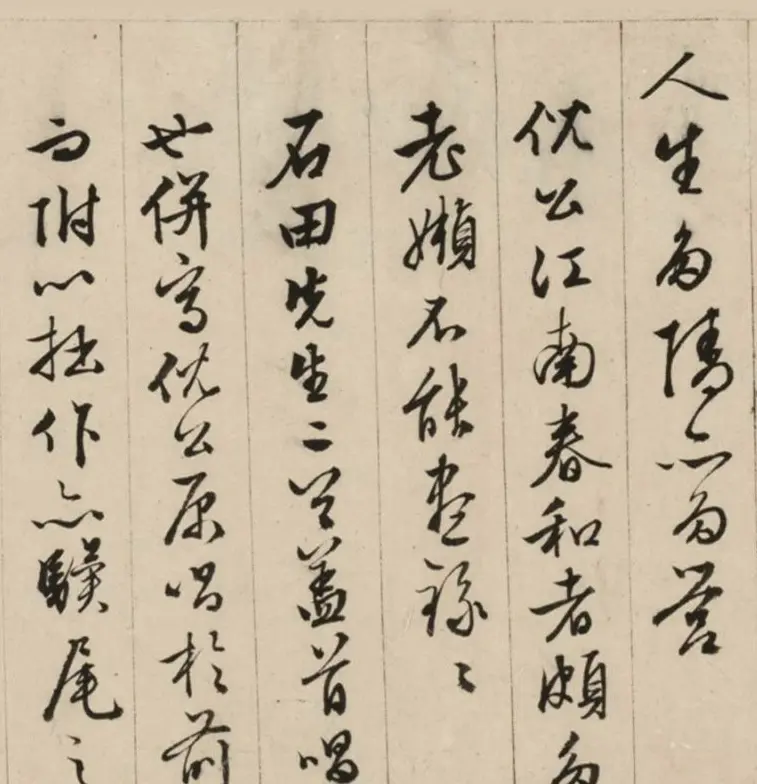 人生多情亦多營
倪公江南春和者頗多
老嬾不能盡錄錄
石田先生二首蓋首唱
也併寫倪公原唱於前
而附以拙作亦驥尾之